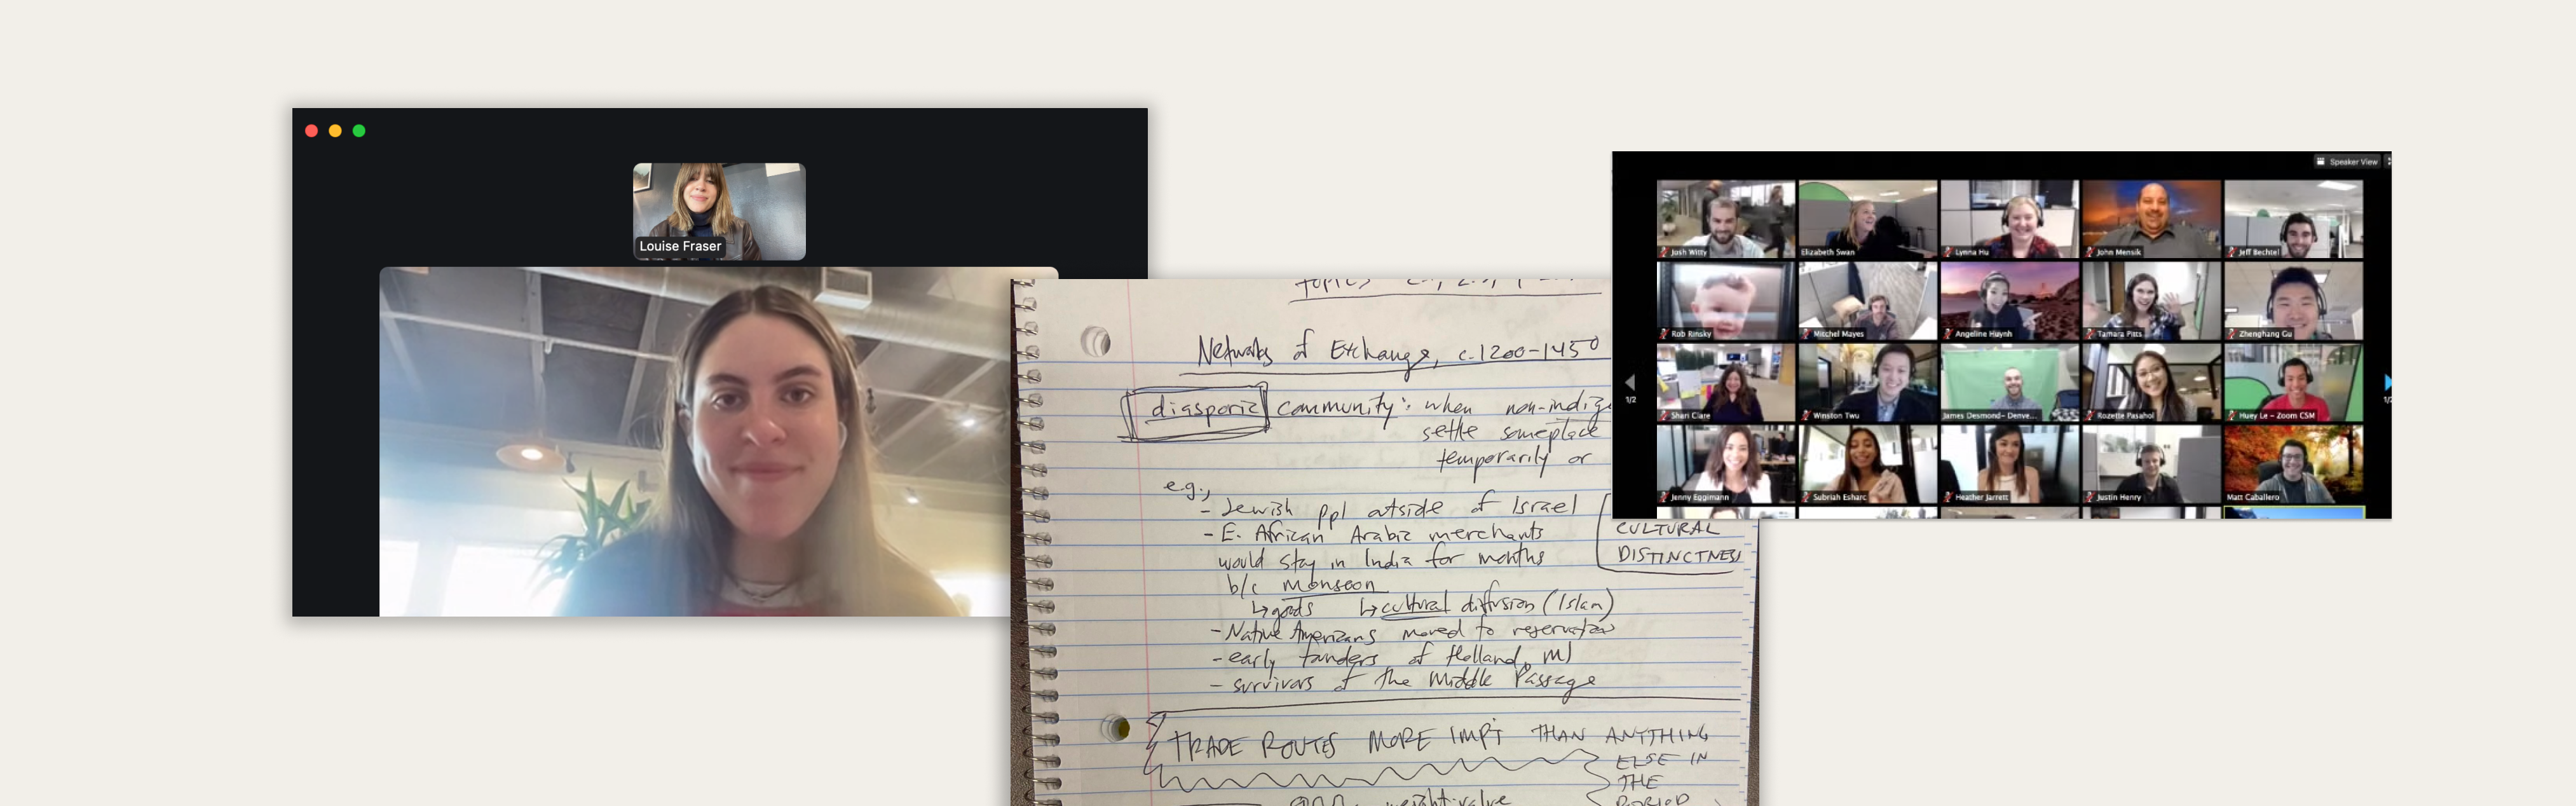 Louise Fraser
Networks of Exchange, c. 1200-1450
diasporic community: when non-indig
settle someplace
temporarily or
e.g.,
- Jewish ppl outside of Israel
- E. African Arabic merchants
would stay in India for months
b/c monsoon
↳goods ↳cultural diffusion (Islam)
- Native Americans moved to reservation
- early founders of Holland, MI
- survivors of the Middle Passage
CULTURAL
DISTINCTNESS
TRADE ROUTES MORE IMP'T THAN ANYTHING
ELSE IN
THE
PERIOD
weight:value
Speaker View
Josh Witty
Elizabeth Swan
Lynna Hu
John Mensik
Jeff Bechtel
Rob Rinsky
Mitchel Mayes
Angeline Huynh
Tamara Pitts
Zhenghang Gu
1/2
Shari Clare
Winston Twu
James Desmond- Denve...
Rozette Pasahol
Huey Le - Zoom CSM
Jenny Eggimann
Subriah Esharc
Heather Jarrett
Justin Henry
Matt Caballero